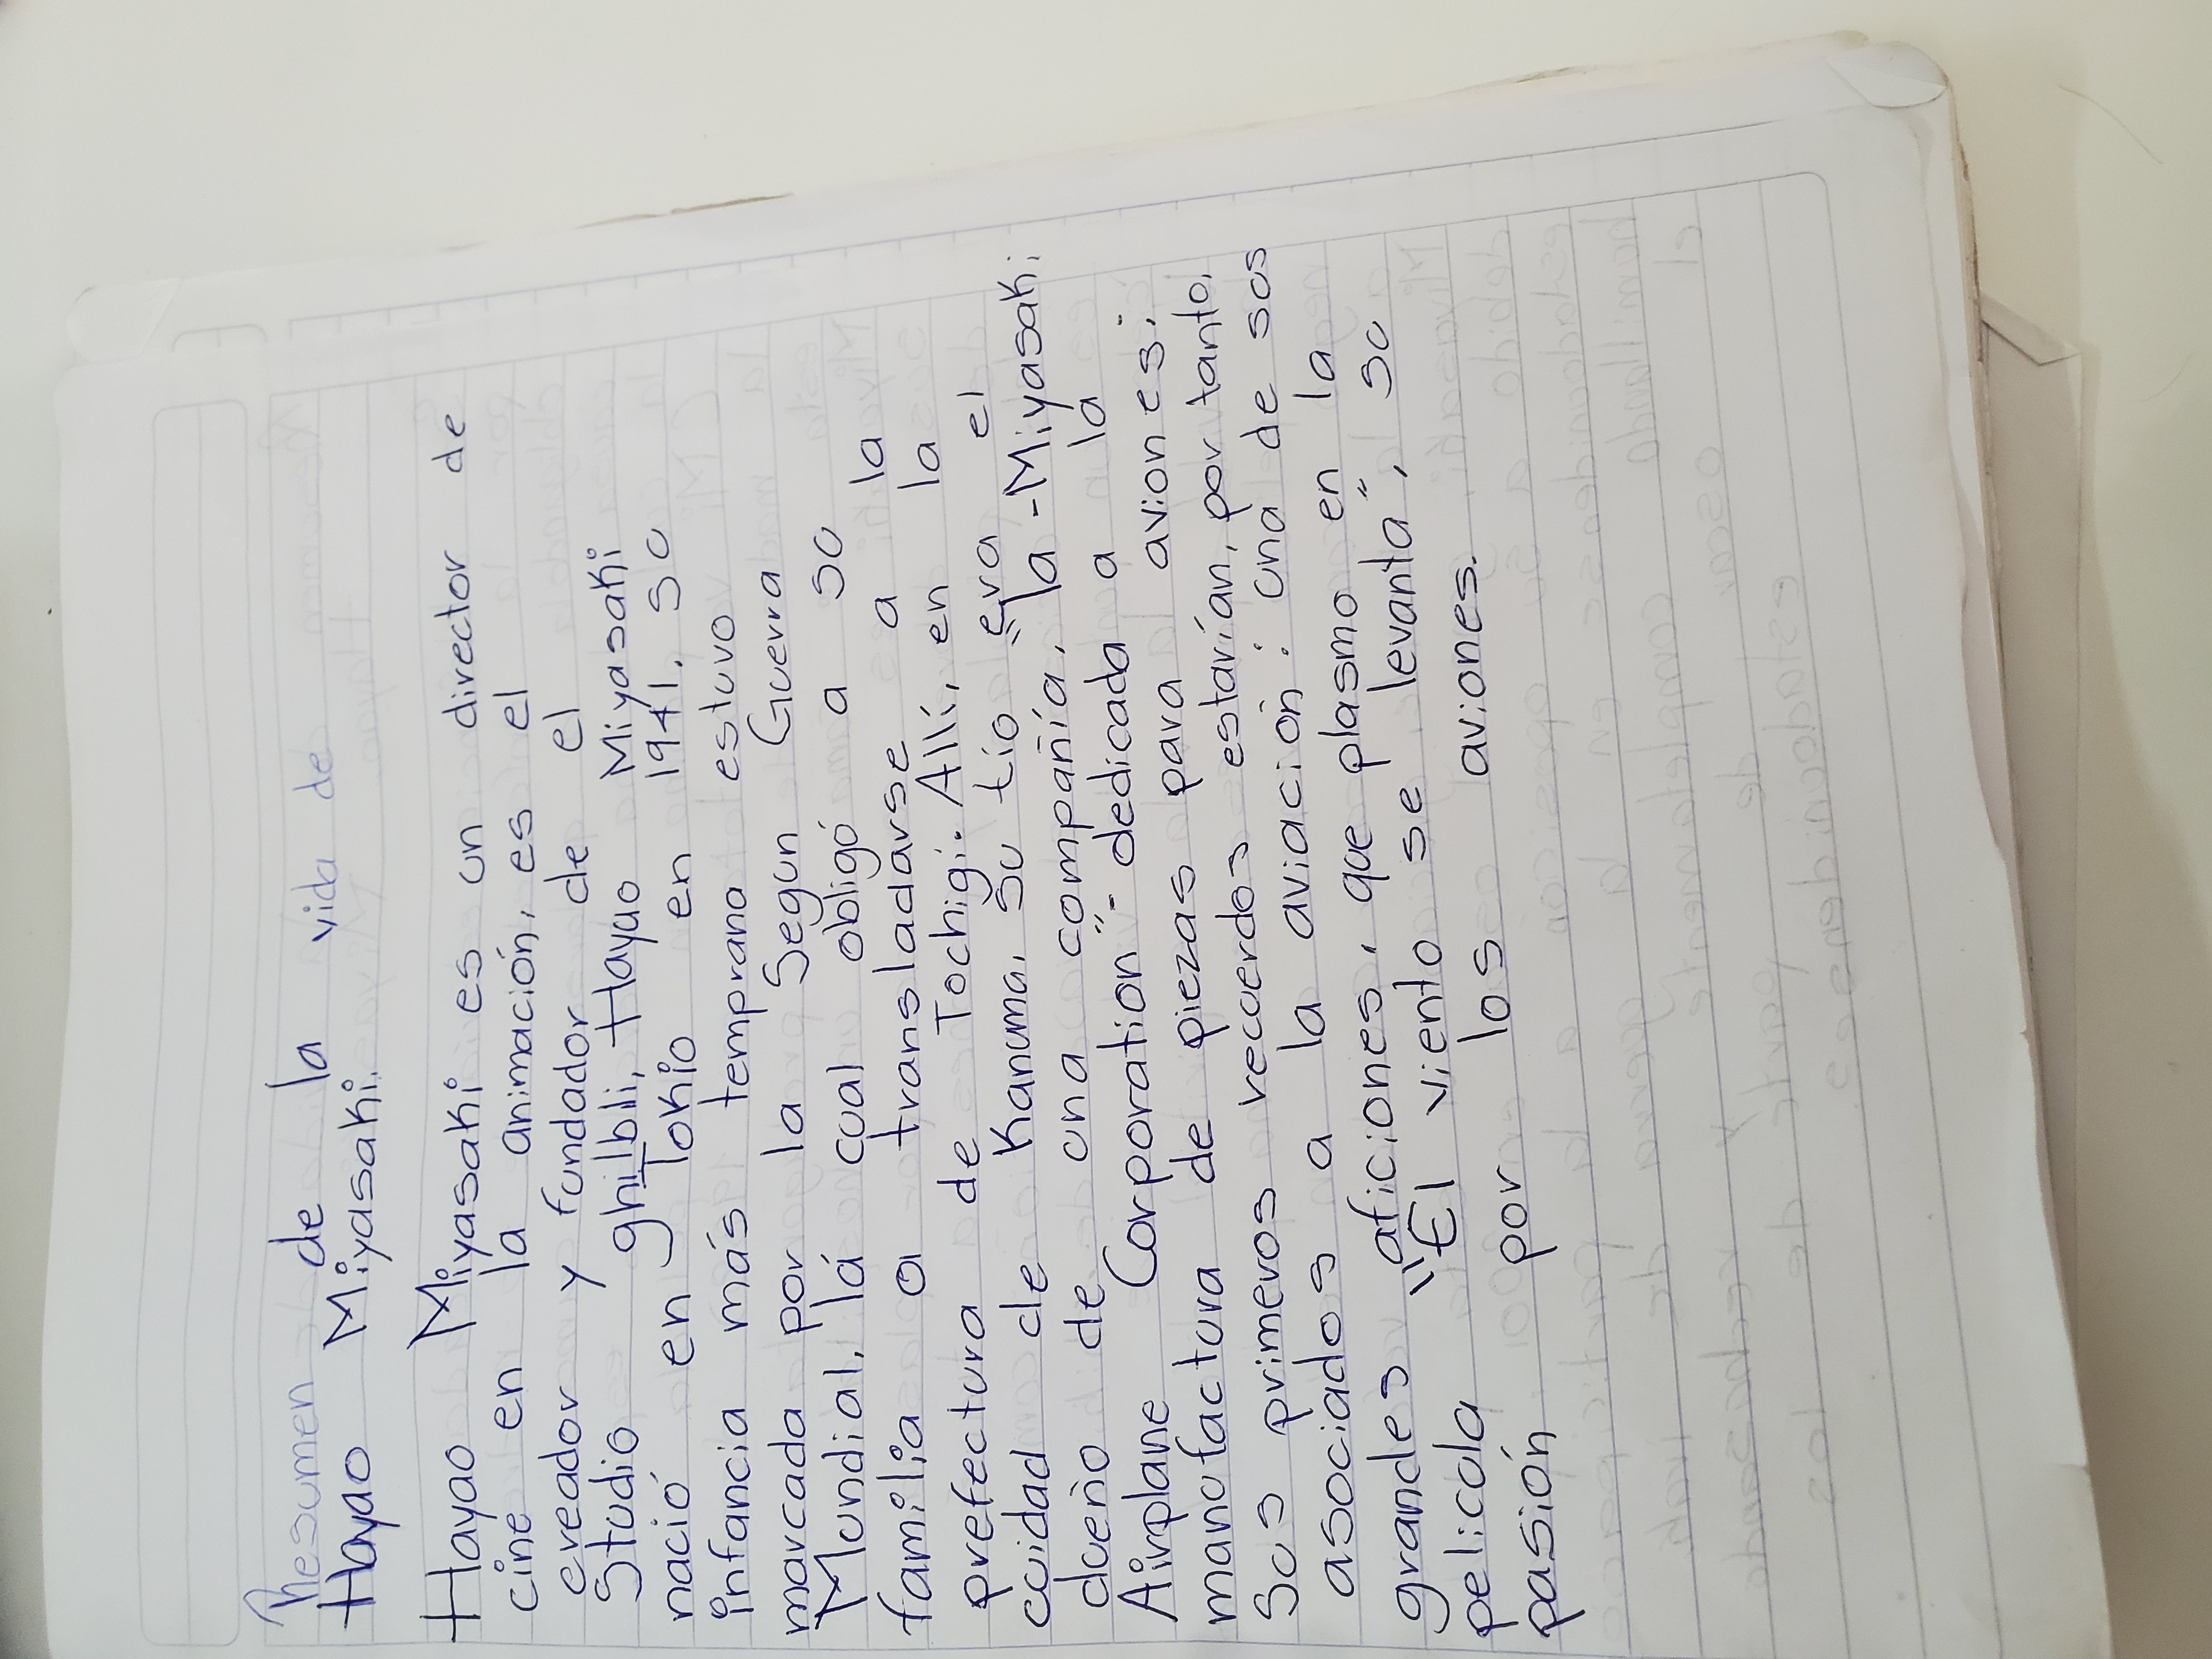 Resumen de la vida de
Hayao Miyasaki.
Hayao Miyasaki es un director de
cine en la animación, es el
creador y fundador de el
Studio ghibli, Hayao Miyasaki
nació en Tokio en 1941. su
infancia más temprana estuvo
marcada por la Segun Guerra
Mundial, lá cual obligó a su
familia a transladarse a la
prefectura de Tochigi. Allí, en la
cuidad de Kanuma, su tío era el
dueño de una compañía, la -Miyasaki
Airplane Corporation"- dedicada a la
manufactura de piezas para aviones;
Sus primeros recuerdos estarían, por tanto,
asociados a la aviación: una de sus
grandes aficiones, que plasmo en la
pelicola "El viento se levanta", su
pasión por los aviones.